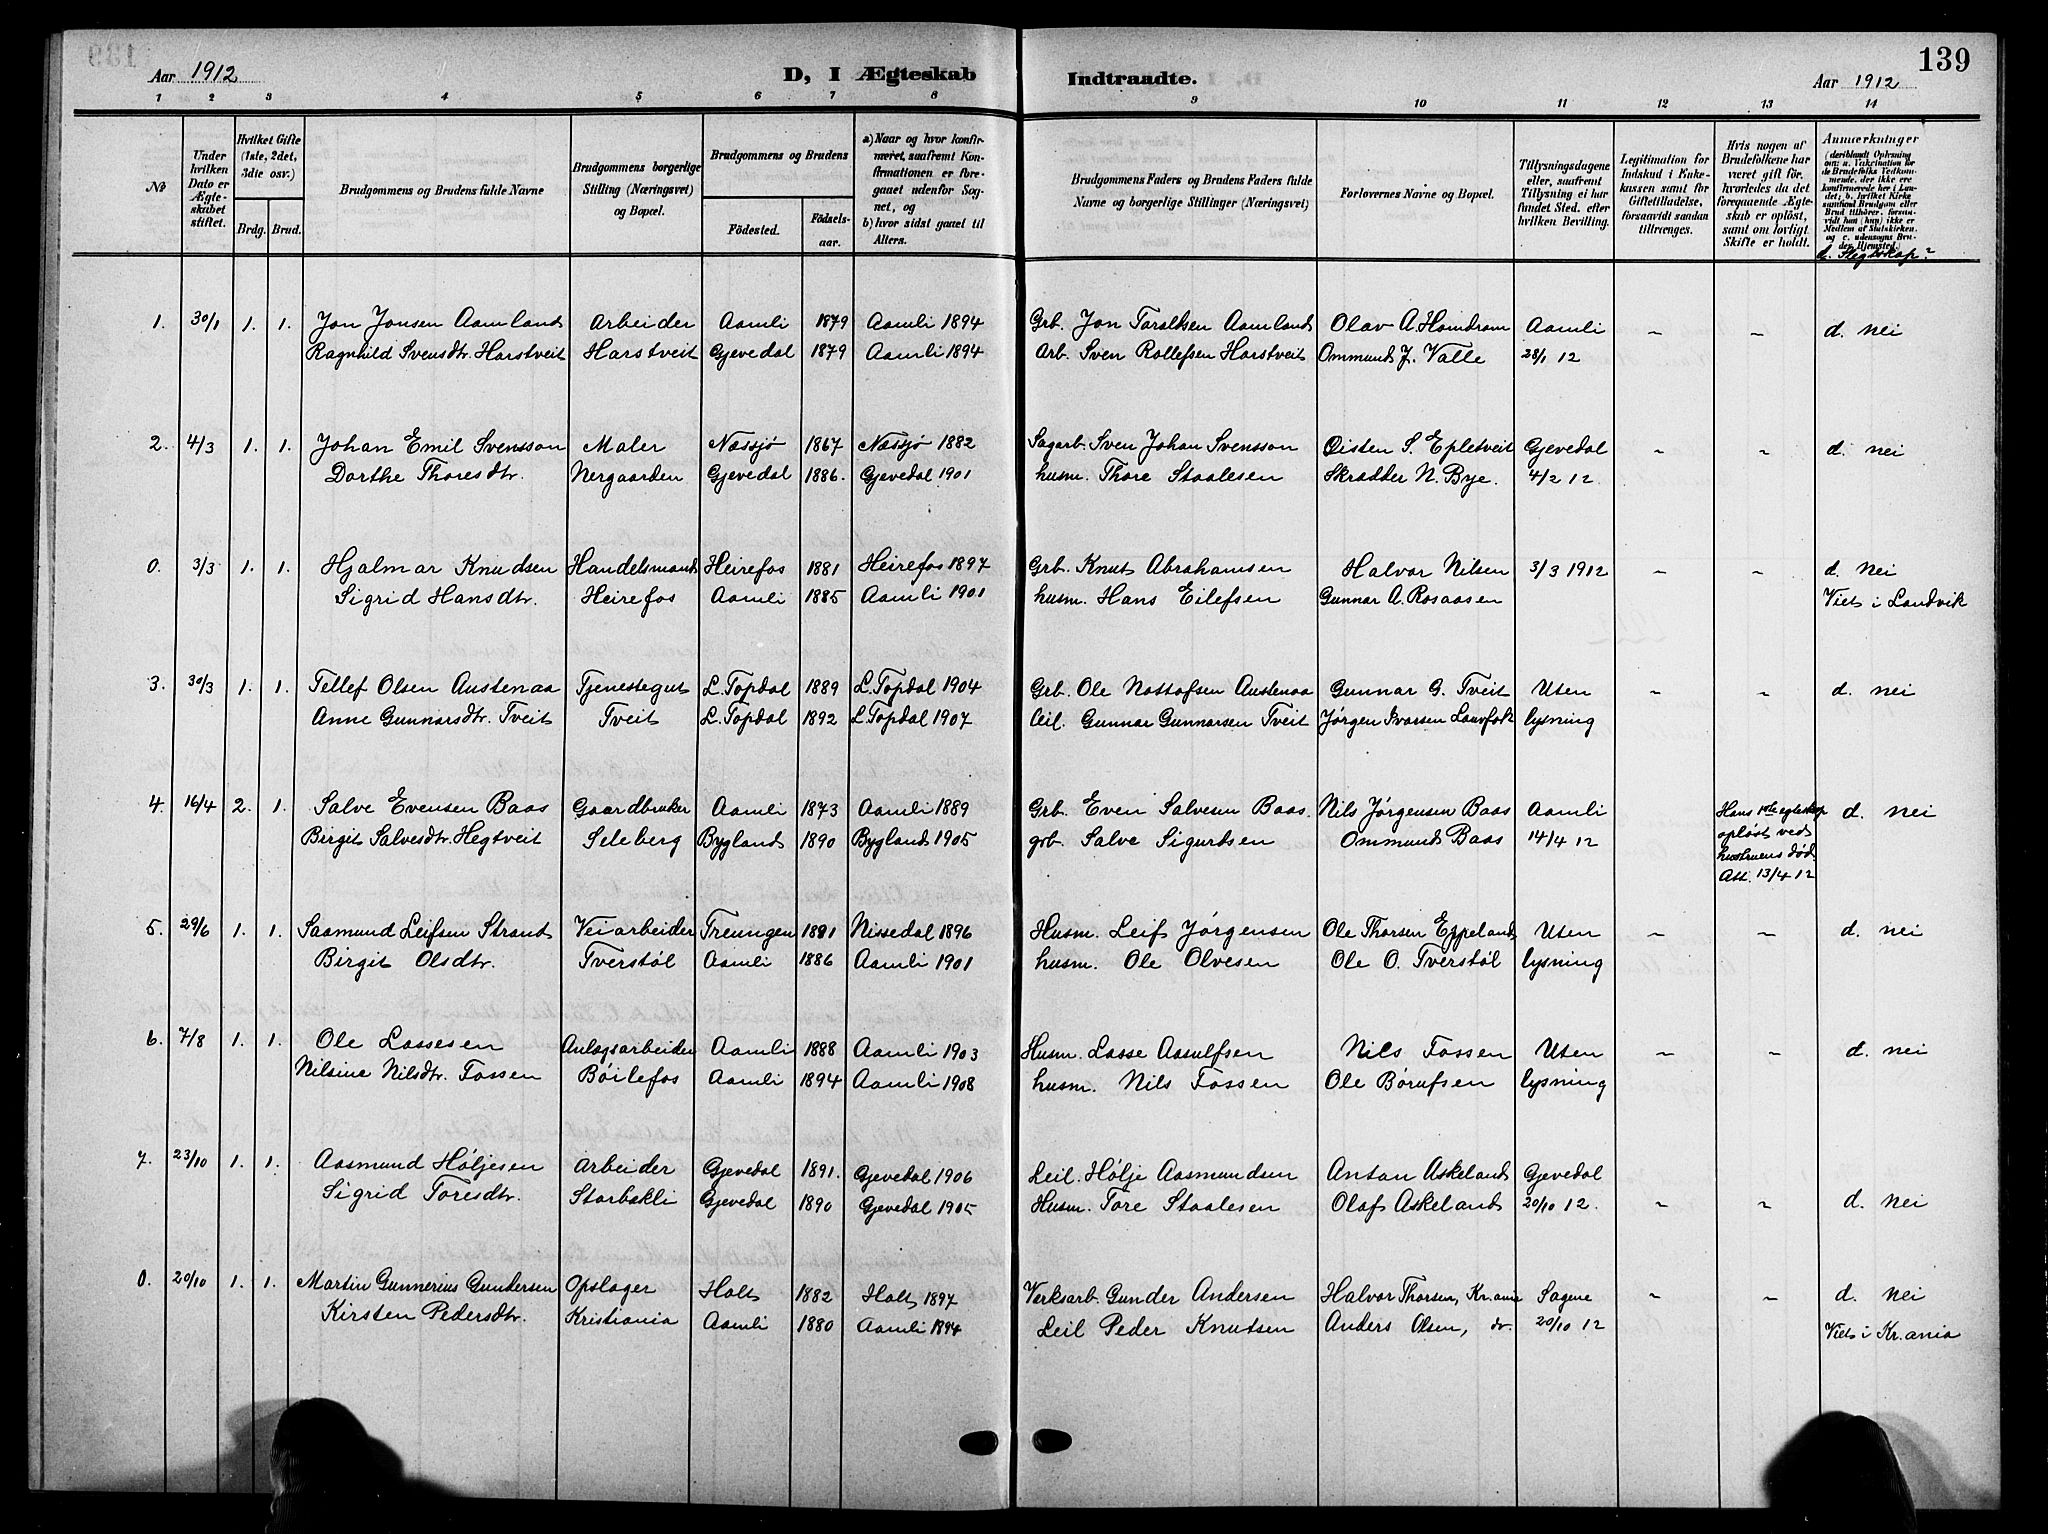 139
Aar 1912
D, I Ægteskab
Indtraadte.
Aar 1912
1 2 3 4 5 6 7 8 9 10 11 12 13 14
No
Under hvilken Dato er Ægteskabet stiftet.
Hvilket Gifte (1ste, 2det, 3die osv.)
Brdg. Brud.
Brudgommens og Brudens fulde Navne
Brudgommens borgerlige Stilling (Næringsvei) og Bopæl.
Brudgommens og Brudens
Födested.
Födselsaar.
a) Naar og hvor konfirmeret, saafremt Konfirmationen er foregaaet udenfor Sognet, og
b) hvor sidst gaaet til Alters.
Brudgommens Faders og Brudens Faders fulde Navne og borgerlige Stillinger (Næringsvei)
Forlovernes Navne og Bopæl.
Tillysningsdagene eller, saafremt Tillysning ei har fundet Sted, efter hvilken Bevilling.
Legitimation for Indskud i Enkekassen samt for Giftetilladelse, forsaavidt saadan tiltrænges.
Hvis nogen af Brudefolkene har været gift för, hvorledes da det foregaaende Ægteskab er oplöst, samt om lovligt Skifte er holdt.
Anmærkninger (deriblandt Oplysning om: a. Vakcination for de Brudefolks Vedkommende, der ikke ere konfirmerede her i Landet; b. hvilket Kirkesamfund Brudgom eller Brud tilhörer, forsaavidt han (hun) ikke er Medlem af Statskirken, og c. udensogns Brudes Hjemsted.)
d. Slegtskap?
1. 30/1 1. 1. Jon Jonsen Aamland Arbeider Aamli 1879 Aamli 1894 Grb. Jon Taraldsen Aamland Olav A. Homdrom Aamli – – d. nei
Ragnhild Svensdtr. Harstveit Harstveit Gjevedal 1879 Aamli 1894 Arb. Sven Rollefsen Harstveit Ommund J. Valle 28/1 12
2. 4/3 1. 1. Johan Emil Svensson Maler Nassjø 1867 Nassjø 1882 Sagarb. Sven Johan Svensson Oisten S. Epletveit Gjevedal – – d. nei
Dorthe Thoresdtr. Nergaarden Gjevedal 1886. Gjevedal 1901 husm. Thore Staalesen Skrædder N. Bye. 4/2 12
0. 3/3 1. 1. Hjalmar Knudsen Handelsmand Heirefos 1881 Heirefos 1897 Grb. Knut Abrahamsen Halvor Nilsen 3/3 1912 – – d. nei
Sigrid Hansdtr. Heirefos Aamli 1885 Aamli 1901 husm. Hans Eilefsen Gunnar A. Rosaasen Viet i Landvik
3. 30/3 1. 1. Tellef Olsen Austenaa Tjenestegut L. Topdal 1889 L. Topdal 1904 Grb. Ole Nottofsen Austenaa Gunnar G. Tveit Uten – – d. nei
Anne Gunnarsdtr. Tveit Tveit L. Topdal 1892 L. Topdal 1907 leil. Gunnar Gunnarsen Tveit Jørgen Ivarsen lysning
4. 16/4 2. 1. Salve Evensen Baas Gaardbruker Aamli 1873 Aamli 1889 Grb. Even Salvesen Baas. Nils Jørgensen Baas Aamli Hans 1ste egteskap d. nei
Birgit Salvesdtr. Hegtveit Seleberg Bygland 1890 Bygland 1905 grb. Salve Sigurdsen Ommund Baas 14/4 12 opløst ved
hustruens død
Att. 13/4 12
5. 29/6 1. 1. Saamund Leifsen Strand Veiarbeider Treungen 1881 Nissedal 1896 Husm. Leif Jørgensen Ole Thorsen Eppeland Uten – – d. nei
Birgit Olsdtr. Tverstøl Aamli 1886 Aamli 1901 husm. Ole Olvesen Ole O. Tverstøl lysning
6. 7/8 1. 1. Ole Lassesen Anlægsarbeider Aamli 1888 Aamli 1903 Husm. Lasse Aasulfsen Nils Fossen Uten – – d. nei
Nilsine Nilsdtr. Fossen Bøilefos Aamli 1894 Aamli 1908 husm. Nils Fossen Ole Børufsen lysning
7. 23/10 1. 1. Aasmund Høljesen Arbeider Gjevedal 1891. Gjevedal 1906 Leil. Hølje Aasmundsen Anton Askeland Gjevedal
Sigrid Toresdtr. Storbakli Gjevedal 1890 Gjevedal 1905 Husm. Tore Staalesen Olaf Askeland 20/10 12. – – d. nei
0. 20/10 1. 1. Martin Gunnerius Gundersen Opslager Holt 1882 Holt 1897 Verksarb. Gunder Andersen Halvor Thorsen, Kr.ania Sagene – – d. nei
Kirsten Pedersdtr. Kristiania Aamli 1880 Aamli 1894 Leil Peder Knutsen Anders Olsen, do. 20/10 12 Viet i Kr.ania